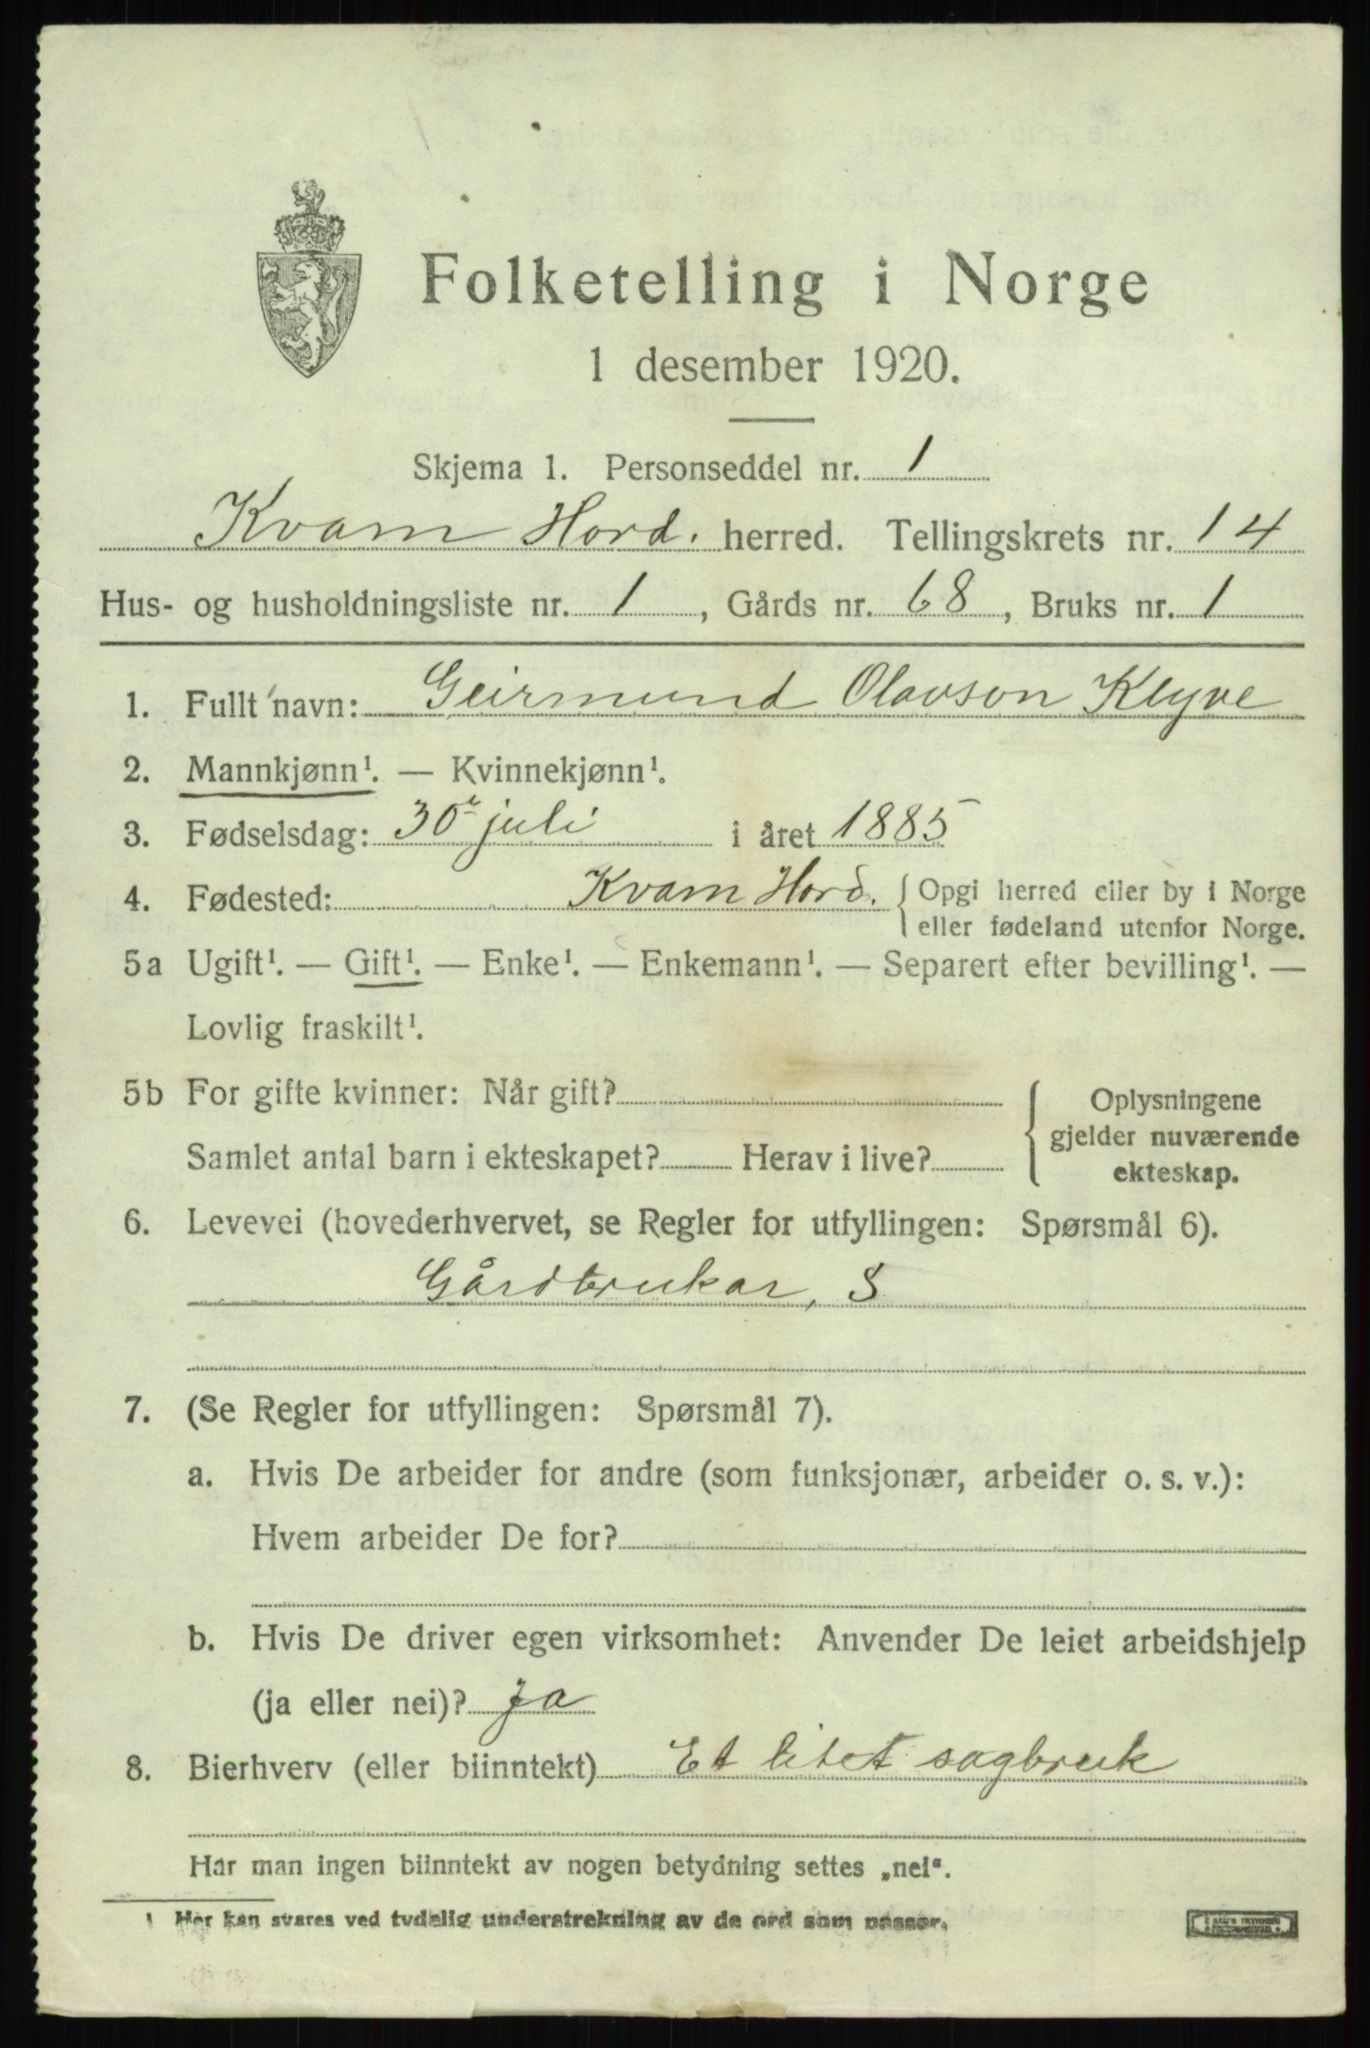 Folketelling i Norge
1 desember 1920.
Skjema 1. Personseddel nr. 1
Kvam Hord. herred. Tellingskrets nr. 14
Hus- og husholdningsliste nr. 1, Gårds nr. 68, Bruks nr. 1
1. Fullt navn: Geirmund Olavson Klyve
2. Mannkjønn¹. — Kvinnekjønn¹.
3. Fødselsdag: 30te juli i året 1885
4. Fødested: Kvam Hord. { Opgi herred eller by i Norge
eller fødeland utenfor Norge.
5a Ugift¹. — Gift¹. — Enke¹. — Enkemann¹. — Separert efter bevilling¹. —
Lovlig fraskilt¹.
5b For gifte kvinner: Når gift?
Samlet antal barn i ekteskapet? Herav i live?
{ Oplysningene
gjelder nuværende
ekteskap.
6. Levevei (hovederhvervet, se Regler for utfyllingen: Spørsmål 6).
Gårdbrukar, S
7. (Se Regler for utfyllingen: Spørsmål 7).
a. Hvis De arbeider for andre (som funksjonær, arbeider o. s. v.):
Hvem arbeider De for?
b. Hvis De driver egen virksomhet: Anvender De leiet arbeidshjelp
(ja eller nei)? Ja
8. Bierhverv (eller biinntekt) Et litet sagbruk
Har man ingen biinntekt av nogen betydning settes „nei“.
¹ Her kan svares ved tydelig understrekning av de ord som passer.